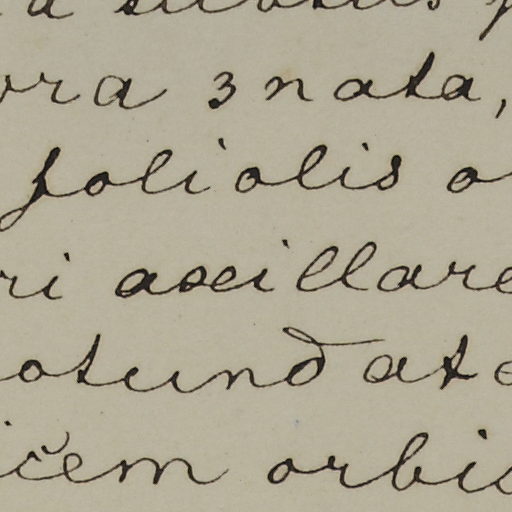 ora 3nata,
foliolis o
ri axillare
otundate
icem orbic